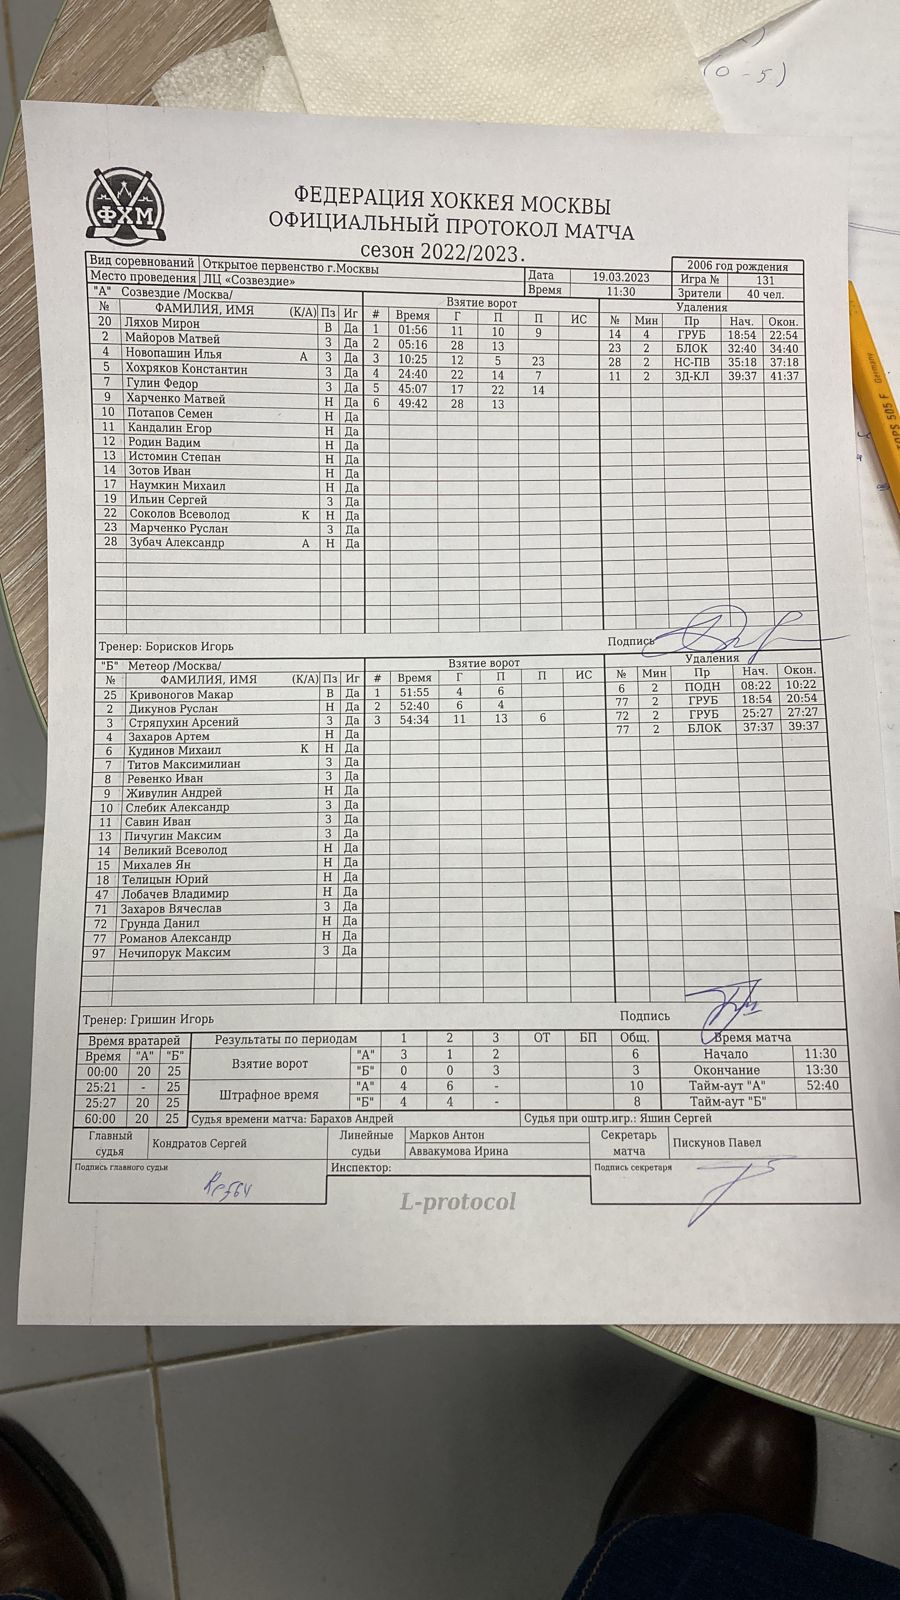 (0 - 5)
ФХМ
ФЕДЕРАЦИЯ ХОККЕЯ МОСКВЫ
ОФИЦИАЛЬНЫЙ ПРОТОКОЛ МАТЧА
сезон 2022/2023.
Вид соревнований Открытое первенство г.Москвы 2006 год рождения
Место проведения ЛЦ «Созвездие» Дата 19.03.2023 Игра № 131
Время 11:30 Зрители 40 чел.
"А" Созвездие /Москва/ Взятие ворот Удаления
№ ФАМИЛИЯ, ИМЯ (К/А) Пз Иг # Время Г П П ИС № Мин Пр Нач. Окон.
20 Ляхов Мирон В Да 1 01:56 11 10 9 14 4 ГРУБ 18:54 22:54
2 Майоров Матвей З Да 2 05:16 28 13 23 2 БЛОК 32:40 34:40
4 Новопашин Илья А З Да 3 10:25 12 5 23 28 2 НС-ПВ 35:18 37:18
5 Хохряков Константин З Да 4 24:40 22 14 7 11 2 ЗД-КЛ 39:37 41:37
7 Гулин Федор З Да 5 45:07 17 22 14
9 Харченко Матвей Н Да 6 49:42 28 13
10 Потапов Семен Н Да
11 Кандалин Егор Н Да
12 Родин Вадим Н Да
13 Истомин Степан Н Да
14 Зотов Иван Н Да
17 Наумкин Михаил Н Да
19 Ильин Сергей З Да
22 Соколов Всеволод К Н Да
23 Марченко Руслан З Да
28 Зубач Александр А Н Да
Тренер: Борисков Игорь Подпись
"Б" Метеор /Москва/ Взятие ворот Удаления
№ ФАМИЛИЯ, ИМЯ (К/А) Пз Иг # Время Г П П ИС № Мин Пр Нач. Окон.
25 Кривоногов Макар В Да 1 51:55 4 6 6 2 ПОДН 08:22 10:22
2 Дикунов Руслан Н Да 2 52:40 6 4 77 2 ГРУБ 18:54 20:54
3 Стряпухин Арсений З Да 3 54:34 11 13 6 72 2 ГРУБ 25:27 27:27
4 Захаров Артем Н Да 77 2 БЛОК 37:37 39:37
6 Кудинов Михаил К Н Да
7 Титов Максимилиан З Да
8 Ревенко Иван З Да
9 Живулин Андрей Н Да
10 Слебик Александр З Да
11 Савин Иван З Да
13 Пичугин Максим З Да
14 Великий Всеволод Н Да
15 Михалев Ян Н Да
18 Телицын Юрий Н Да
47 Лобачев Владимир Н Да
71 Захаров Вячеслав З Да
72 Грунда Данил Н Да
77 Романов Александр Н Да
97 Нечипорук Максим З Да
Тренер: Гришин Игорь Подпись
Время вратарей Результаты по периодам 1 2 3 ОТ БП Общ. Время матча
Время "А" "Б" Взятие ворот "А" 3 1 2 6 Начало 11:30
00:00 20 25 "Б" 0 0 3 3 Окончание 13:30
25:21 - 25 Штрафное время "А" 4 6 - 10 Тайм-аут "А" 52:40
25:27 20 25 "Б" 4 4 - 8 Тайм-аут "Б"
60:00 20 25 Судья времени матча: Барахов Андрей Судья при оштр.игр.: Яшин Сергей
Главный судья Кондратов Сергей Линейные судьи Марков Антон Секретарь матча Пискунов Павел
Аввакумова Ирина
Подпись главного судьи Инспектор: Подпись секретаря
L-protocol
TOPS 505 F Germany